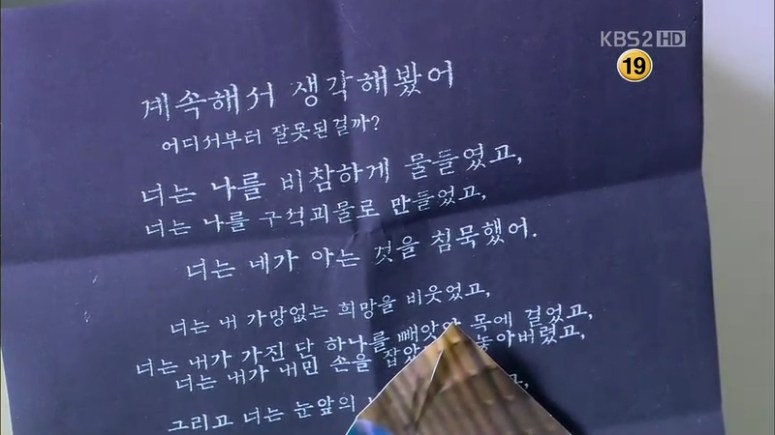 KBS2 HD
19
계속해서 생각해봤어
어디서부터 잘못된걸까?
너는 나를 비참하게 물들였고,
너는 나를 구석괴물로 만들었고,
너는 네가 아는 것을 침묵했어.
너는 내 가망없는 희망을 비웃었고,
너는 내가 가진 단 하나를 빼앗아 목에 걸었고,
너는 내가 내민 손을 놓아버렸고,
그리고 너는 눈앞의